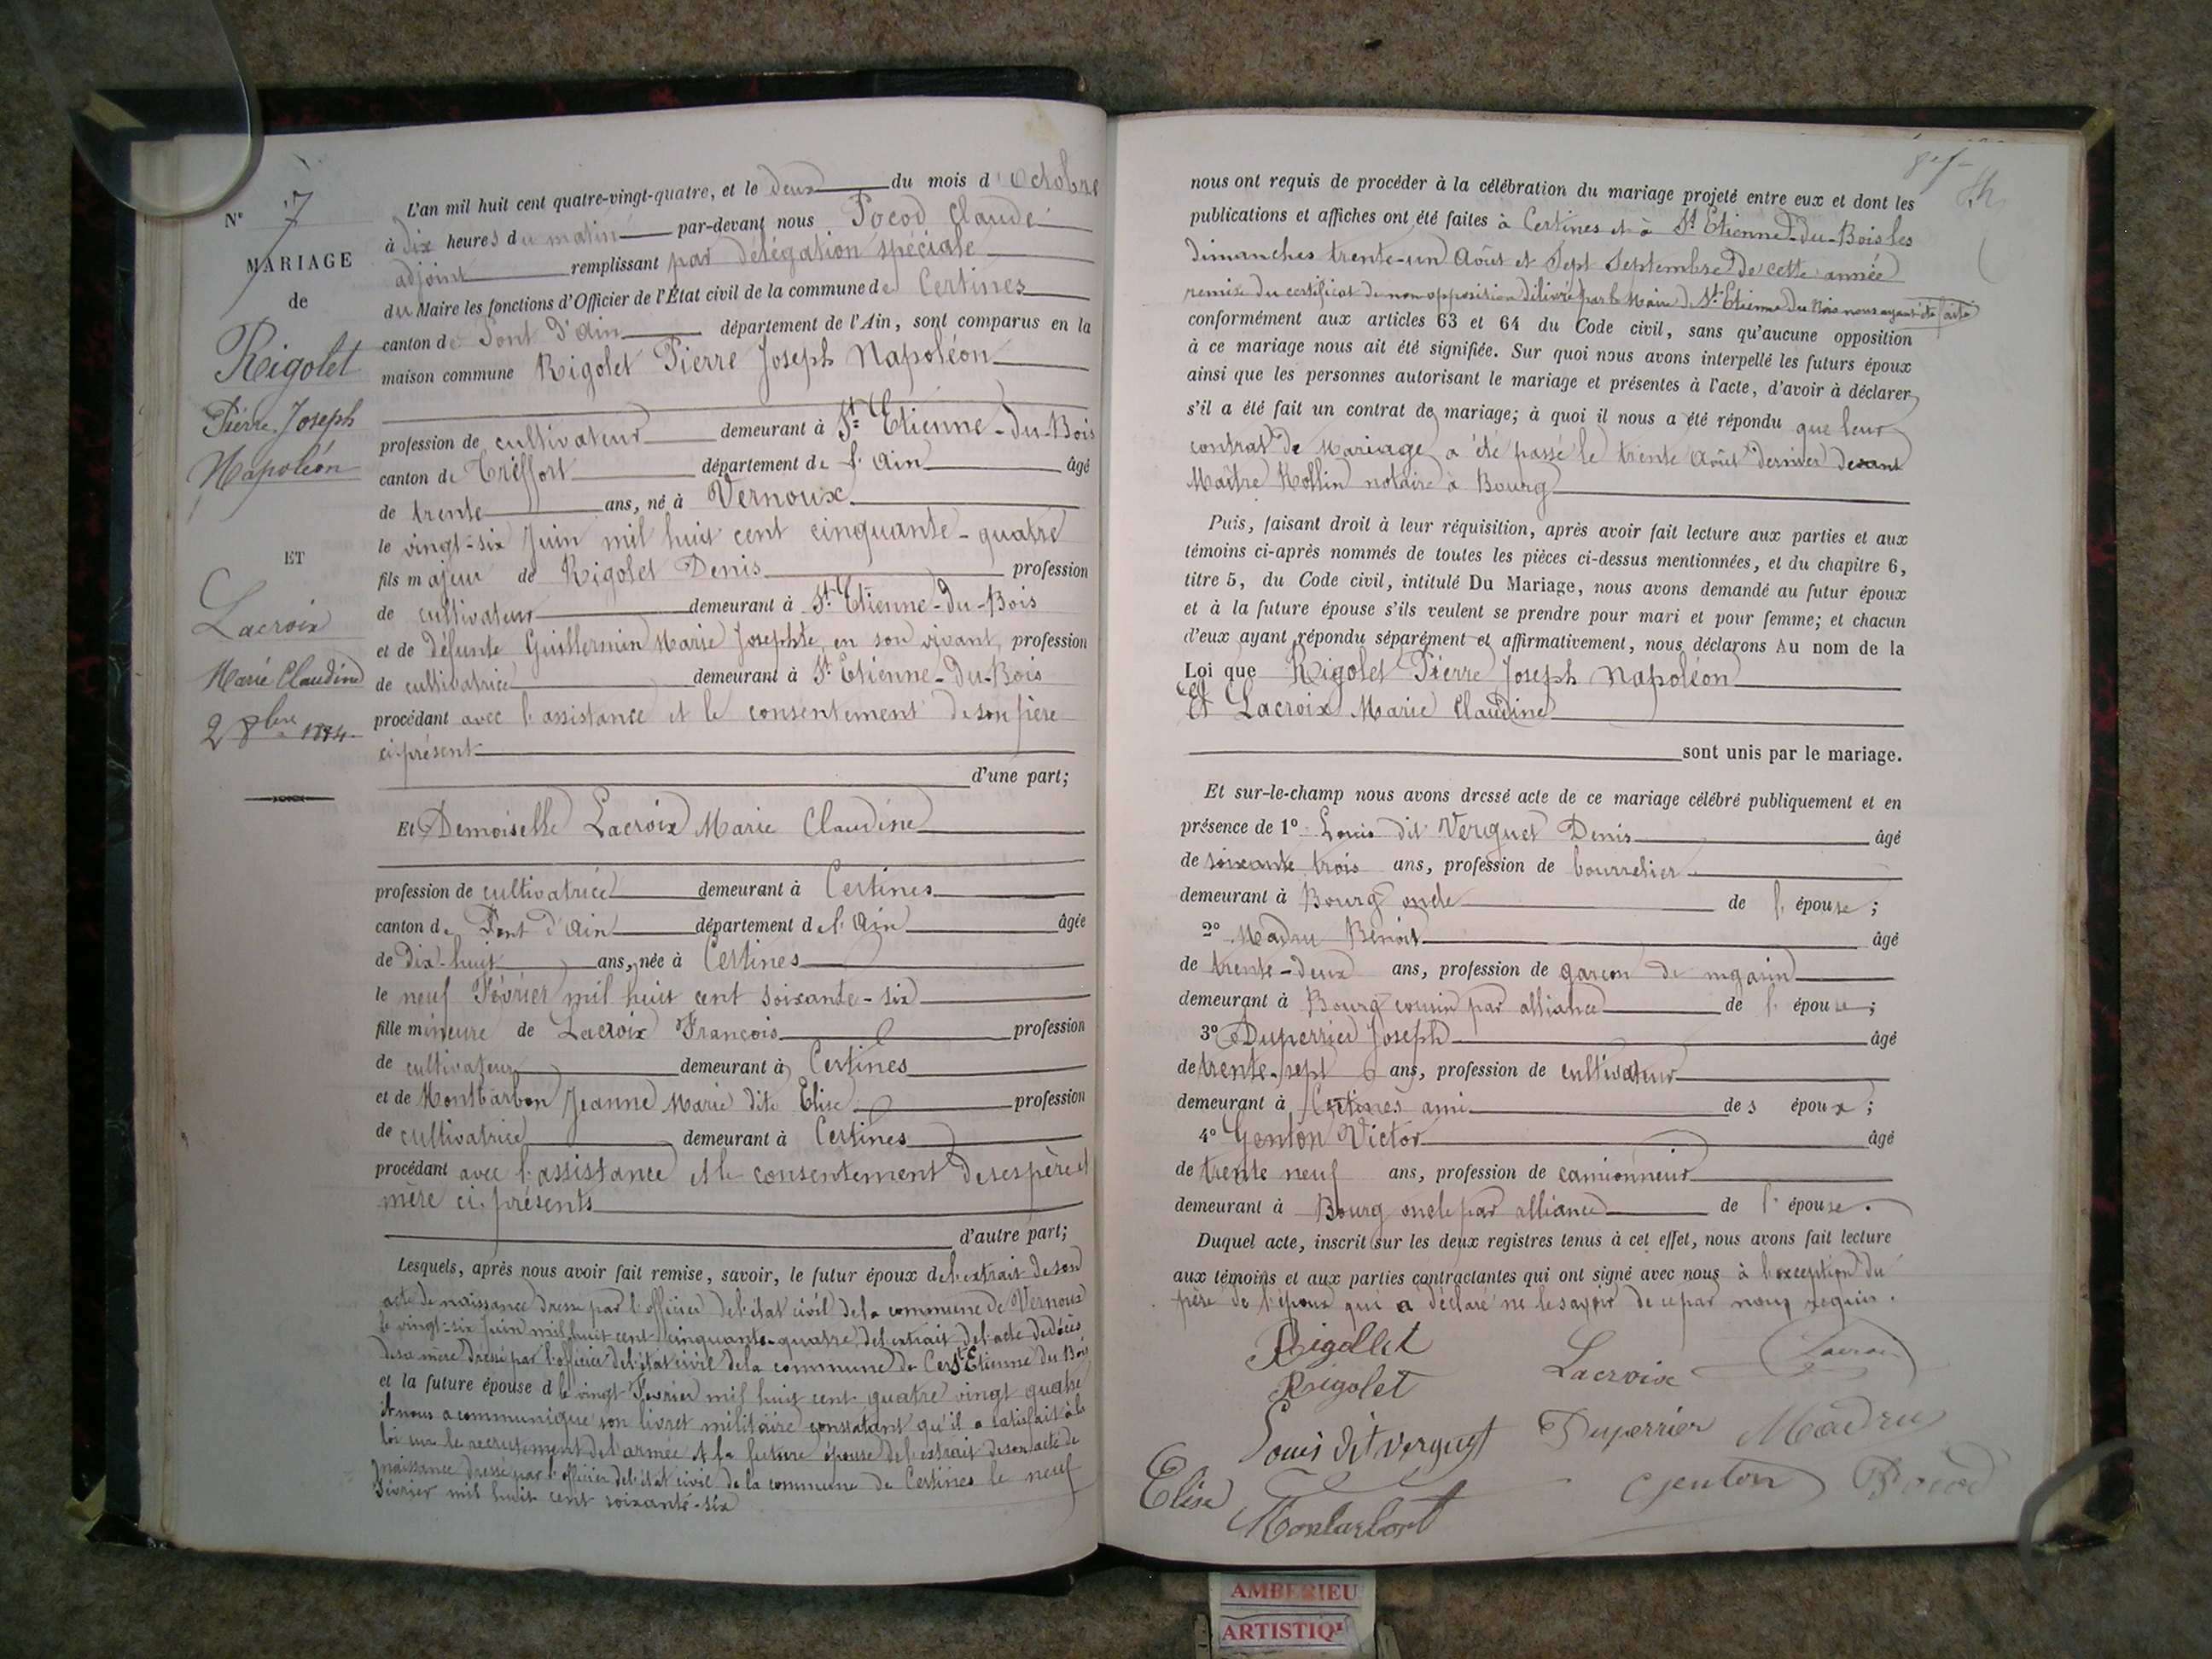 N° 7
MARIAGE
de
Rigolet
Pierre Joseph
Napoléon
ET
Lacroix
Marie Claudine
2 8bre 1884.
L'an mil huit cent quatre-vingt-quatre, et le deux du mois d'Octobre
à dix heures du matin par-devant nous Pocod Claude
adjoint remplissant par délégation spéciale
du Maire les fonctions d'Officier de l'État civil de la commune de Certines
canton de Pont d'Ain département de l'Ain, sont comparus en la
maison commune Rigolet Pierre Joseph Napoléon
profession de cultivateur demeurant à St Etienne-du-Bois
canton de Treffort département de l'Ain âgé
de trente ans, né à Vernoux
le vingt-six Juin mil huit cent cinquante-quatre
fils majeur de Rigolet Denis profession
de cultivateur demeurant à St Etienne-du-Bois
et de défunte Guillermin Marie Josephte, en son vivant, profession
de cultivatrice demeurant à St Etienne-du-Bois
procédant avec l'assistance et le consentement de son père
ci-présent
d'une part;
Et Demoiselle Lacroix Marie Claudine
profession de cultivatrice demeurant à Certines
canton de Pont d'Ain département de l'Ain âgée
de Dix-huit ans, née à Certines
le neuf Février mil huit cent soixante-six
fille mineure de Lacroix François profession
de cultivateur demeurant à Certines
et de Montbarbon Jeanne Marie dite Elise profession
de cultivatrice demeurant à Certines
procédant avec l'assistance et le consentement de ses père et
mère ci-présents
d'autre part;
Lesquels, après nous avoir fait remise, savoir, le futur époux de l'extrait de son
acte de naissance dressé par l'officier de l'état civil de la commune de Vernoux
le vingt-six Juin mil huit cent cinquante-quatre, de l'extrait de l'acte de décès
de sa mère dressé par l'officier de l'état civil de la commune de St Etienne du Bois
et la future épouse d le vingt Février mil huit cent quatre vingt quatre
et nous a communiqué son livret militaire constatant qu'il a satisfait à la
loi sur le recrutement de l'armée et la future épouse de l'extrait de son acte de
naissance dressé par l'officier de l'état civil de la commune de Certines le neuf
Février mil huit cent soixante-six
nous ont requis de procéder à la célébration du mariage projeté entre eux et dont les
publications et affiches ont été faites à Certines et à St Etienne-du-Bois les
dimanches trente-un Août et Sept Septembre de cette année
remise du certificat de non opposition délivré par le Maire de St Etienne du Bois nous ayant été faite
conformément aux articles 63 et 64 du Code civil, sans qu'aucune opposition
à ce mariage nous ait été signifiée. Sur quoi nous avons interpellé les futurs époux
ainsi que les personnes autorisant le mariage et présentes à l'acte, d'avoir à déclarer
s'il a été fait un contrat de mariage; à quoi il nous a été répondu que leur
contrat de Mariage a été passé le trente Août dernier devant
Maître Rollin notaire à Bourg
Puis, faisant droit à leur réquisition, après avoir fait lecture aux parties et aux
témoins ci-après nommés de toutes les pièces ci-dessus mentionnées, et du chapitre 6,
titre 5, du Code civil, intitulé Du Mariage, nous avons demandé au futur époux
et à la future épouse s'ils veulent se prendre pour mari et pour femme; et chacun
d'eux ayant répondu séparément et affirmativement, nous déclarons Au nom de la
Loi que Rigolet Pierre Joseph Napoléon
Et Lacroix Marie Claudine
sont unis par le mariage.
Et sur-le-champ nous avons dressé acte de ce mariage célébré publiquement et en
présence de 1° Louis dit Verguet Denis âgé
de soixante trois ans, profession de bourrelier
demeurant à Bourg oncle de l'épouse;
2° Madru Benoit âgé
de trente-deux ans, profession de garçon de magasin
demeurant à Bourg cousin par alliance de l'épouse;
3° Duperrier Joseph âgé
de trente-sept ans, profession de cultivateur
demeurant à Certines ami des époux;
4° Genton Victor âgé
de trente neuf ans, profession de camionneur
demeurant à Bourg oncle par alliance de l'épouse.
Duquel acte, inscrit sur les deux registres tenus à cet effet, nous avons fait lecture
aux témoins et aux parties contractantes qui ont signé avec nous à l'exception du
père de l'époux qui a déclaré ne le savoir de ce par nous requis.
Rigollet Lacroix Lacroix
Rigolet
Louis dit verguet Duperrier Madru
Elise Genton Pocod
Montarbont
AMBERIEU
ARTISTIQ